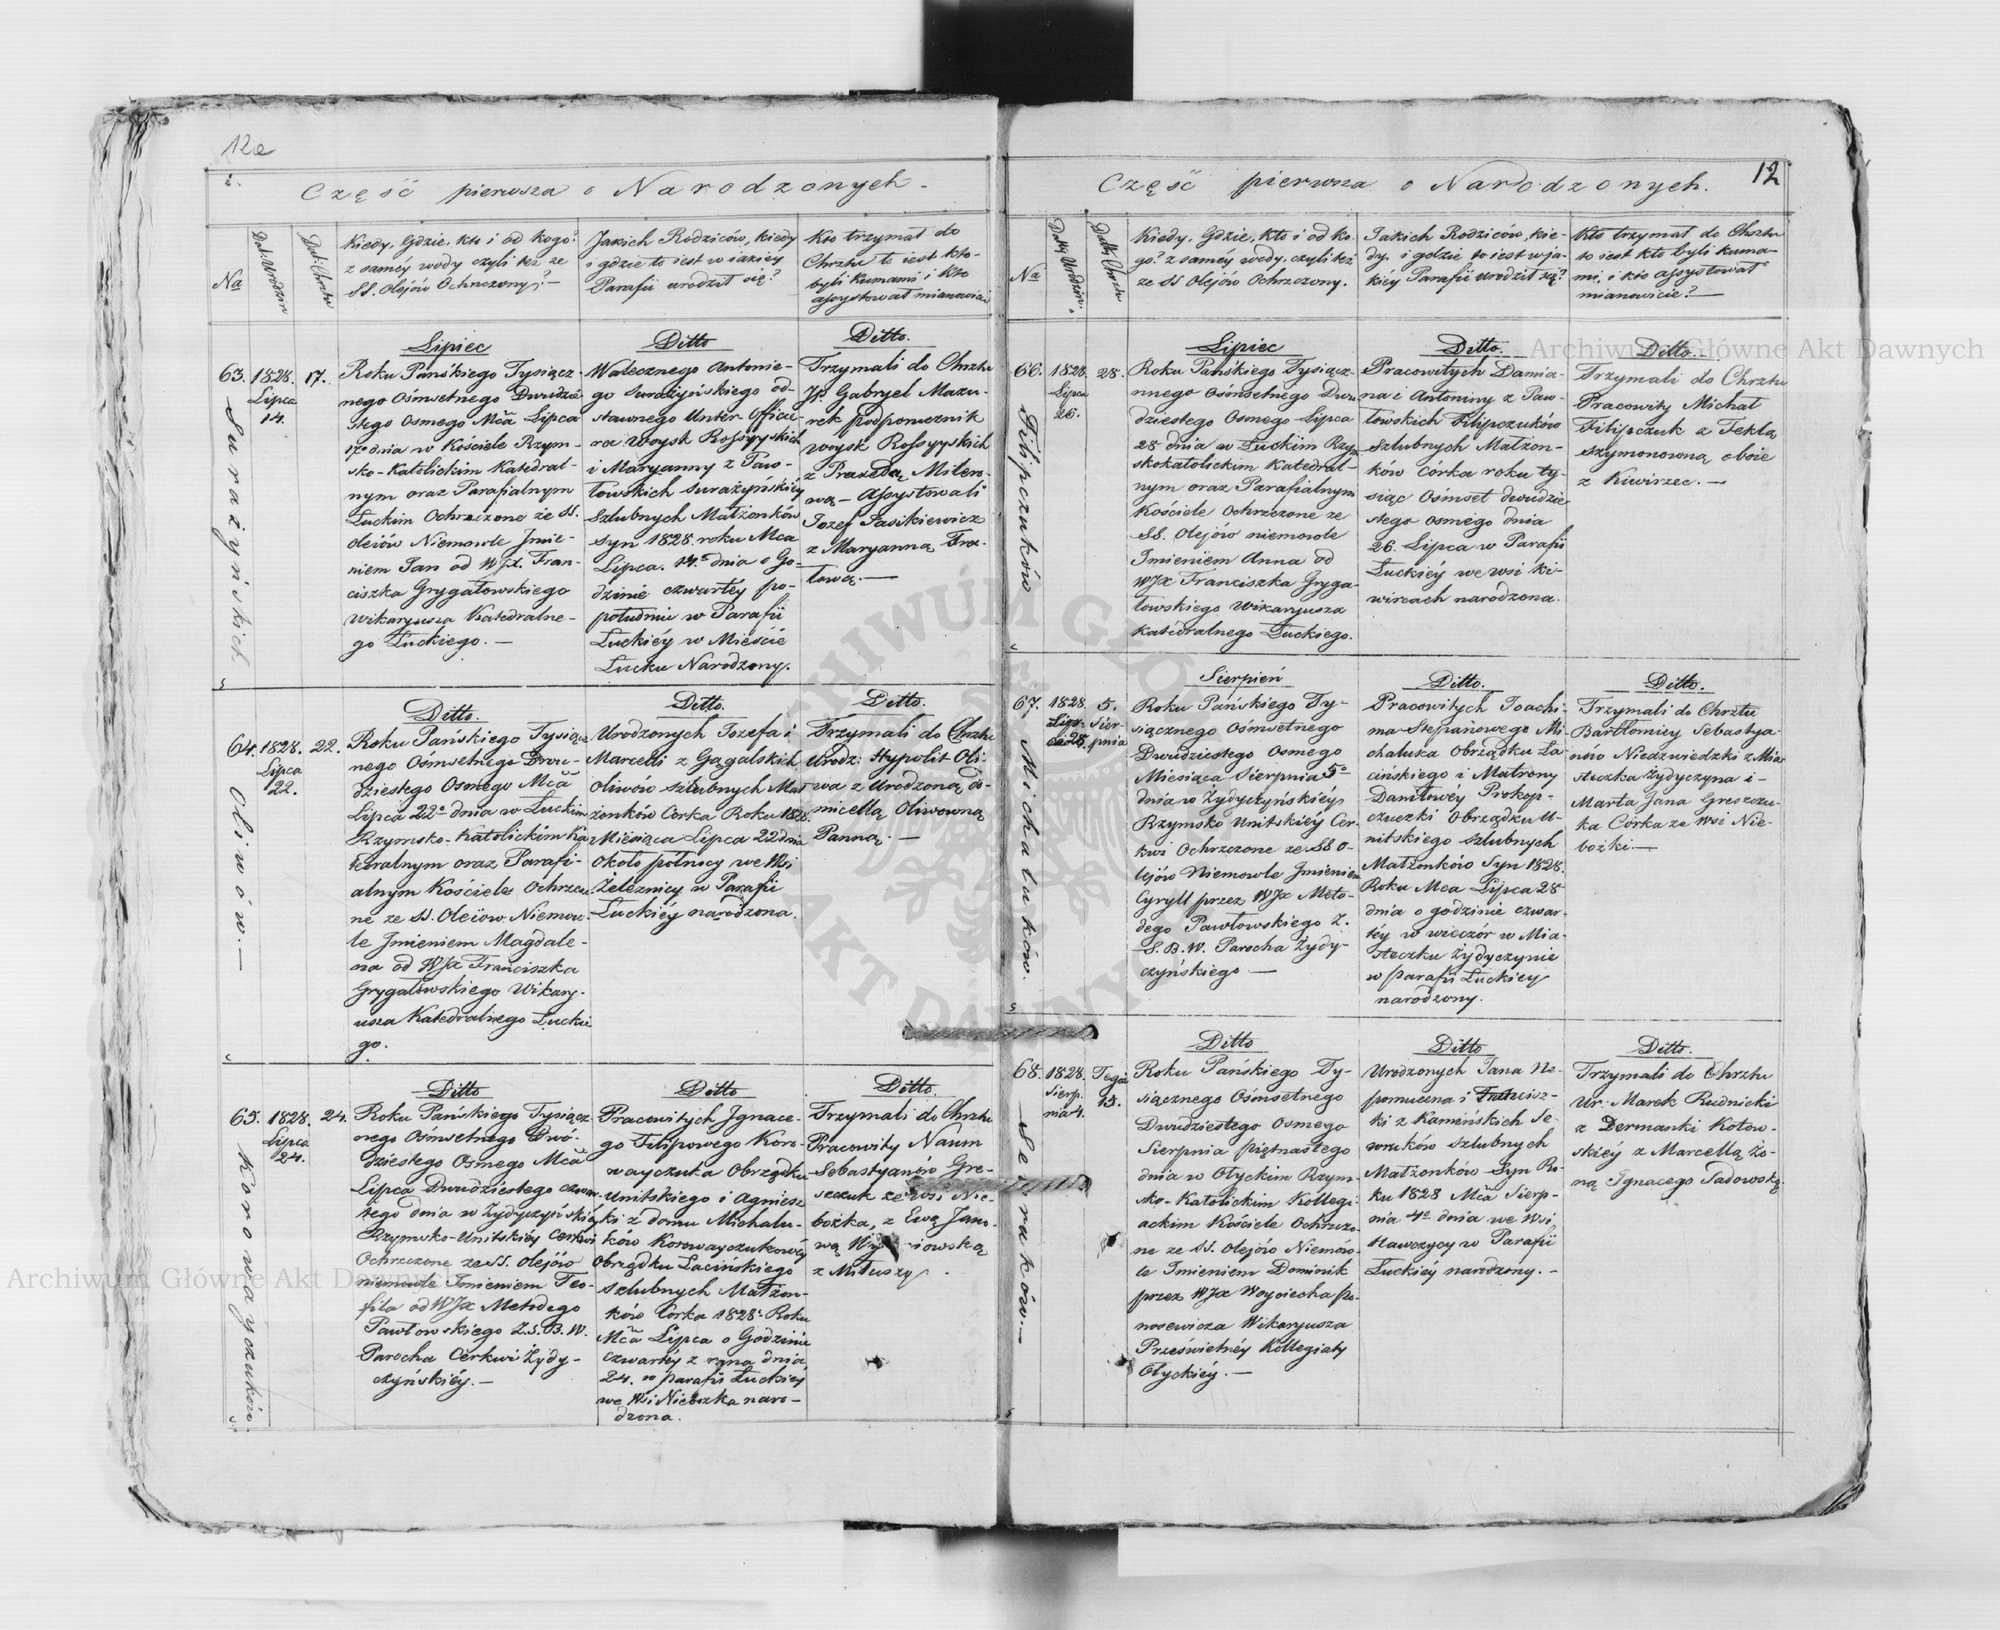 12e
Część pierwsza o Narodzonych.
Na
Dat: Urodzin
Dat: Chrztu
Kiedy, Gdzie, kto i od kogo?
z saméy wody czyli też ze
SS. Olejów Ochrzczony?—
Jakich Rodziców, kiedy
i gdzie to iest w iakiey
Parafii urodził się?
Kto trzymał do
Chrztu to iest kto-
byli kumami i kto
assystował mianowicie
63.
Surażyńskich
1828.
Lipca
14.
17.
Lipiec
Roku Pańskiego Tysiącz-
nego Ośmsetnego Dwudzie
stego Osmego Mca Lipca
17o dnia w Kościele Rzym-
sko-Katolickim Katedral-
nym oraz Parafialnym
Łuckim Ochrzczone ze SS.
oleiów Niemowle Jmie-
niem Jan od WJx. Fran-
ciszka Grygałowskiego
wikaryusza Katedralne-
go Łuckiego.—
Ditto
Walecznego Antonie-
go Surażyńskiego od-
stawnego Unter Office-
ra woysk Rossyyskich
i Maryanny z Paw-
łowskich Surażyńskiey
Szlubnych Małżonków
Syn 1828 roku Mca
Lipca. 14. dnia o Go-
dzinie czwartéy po-
południu w Parafii
Łuckiéy w Mieście
Łucku Narodzony.
Ditto.
Trzymali do Chrztu
Gabryel Mazu-
rek podpomocznik
woysk Rossyyskich
z Praxedą Milew-
wą— Assystowali
Jozef Pasikiewicz
z Maryanną Fra-
łową.—
64.
Oliwów.—
1828.
Lipca
22.
22.
Ditto.
Roku Pańskiego Tysiącz
nego Ośmsetnego Dwu-
dziestego Osmego Mca
Lipca 22o dnia w Łuckim
Rzymsko-Katolickim Ka
tedralnym oraz Parafi-
alnym Kościele Ochrzczo
ne ze SS. Oleiow Niemow-
le Jmieniem Magdale-
na od WJX Franciszka
Grygałowskiego Wikary-
usza Katedralnego Łuckie
go.
Ditto.
Urodzonych Jozefa i
Marcelli z Gągalskich
Oliwów Szlubnych Mał
żonków Córka Roku 1828.
Miesiąca Lipca 22 dnia
około północy we Wsi
Żeleznicy w Parafii
Łuckiéy narodzona.
Ditto.
Trzymali do Chrztu
Urodz: Hypolit Oli-
wa z Urodzoną Do-
micellą Oliwowną
Panną.—
65.
Korowayczuków.
1828.
Lipca
24.
24.
Ditto
Roku Pańskiego Tysiącz
nego Ośmsetnego Dwó-
dziestego Osmego Mca
Lipca Dwudziestego czwar
tego dnia w Żydyczyńskiéy
Rzymsko-Unitskiéy Cerkwi
Ochrzczone ze SS. olejów
niemowle Jmieniem Teo-
fila od WJX Metodego
Pawłowskiego Z.S.B.W.
Parocha Cerkwi Żydy-
czyńskiéy.—
Ditto
Pracowitych Jgnace-
go Filipowego Koro-
wayczuka Obrządku
Unitskiego i Agniesz
ki z domu Michalu-
ków Korowayczukowéy
Obrządku Łacińskiego
Szlubnych Małżon-
ków Corka 1828. Roku
Mca Lipca o Godzinie
czwartéy z rana dnia
24. w parafii Łuckiéy
we Wsi Niebozka naro-
dzona.
Ditto.
Trzymali do Chrztu
Pracowity Naum
Sebastyanów Gre-
szczuk ze wsi Nie-
bożka, z Ewą Jano-
wą
z Miłuszy.
12
Część pierwsza o Narodzonych.
Na
Daty Urodzin:
Daty Chrztu
Kiedy, Gdzie, kto i od ko-
go? z saméy wody, czyli też
ze SS Olejów Ochrzczony.
Jakich Rodziców, kie-
dy, i gdzie to iest w ja-
kiéy Parafii urodził się?
Kto trzymał do Chrztu
to iest kto byli kuma-
mi, i kto assystował
mianowicie?—
66.
Filipczuków
1828.
Lipca
26.
28.
Lipiec
Roku Pańskiego Tysiącz-
nnego Ośmsetnego Dwu
dziestego Osmego Lipca
28 dnia w Łuckiim Rzym
skokatolickim Katedral-
nym oraz Parafialnym
Kościele Ochrzczone ze
SS. Olejów niemowle
Jmieniem Anna od
WJX Franciszka Gryga-
łowskiego Wikaryusza
Katedralnego Łuckiego.
Ditto.
Pracowitych Damia-
na i Antoniny z Paw-
łowskich Filipczuków
Szlubnych Małżon-
ków córka roku ty-
siąc Ośmset dwudzie-
stego osmego dnia
26. Lipca w Parafii
Łuckiéy we wsi Ki-
wircach narodzona.
Ditto.
Trzymali do Chrztu
Pracowity Michał
Filipczuk z Teklą
Szymonowną oboie
z Kiwirzec.—
67.
Michaluków.
1828.
Lip-
ca 28.
5.
Sier-
pnia
Sierpień
Roku Pańskiego Ty-
siącznego Ośmsetnego
Dwudziestego Osmego
Miesiąca Sierpnia 5o
dnia w Żydyczyńskiéy
Rzymsko Unitskiéy Cer-
kwi Ochrzczone ze SS O-
lejów Niemowle Jmieniem
Cyryll przez WJX Meto-
dego Pawłowskiego Z.
S.B.W. Parocha Żydy-
czyńskiego—
Ditto.
Pracowitych Joachi-
ma Stepanowego Mi
chaluka Obrządku Ła-
cińskiego i Matrony
Daniłowéy Prokop-
czuczki Obrządku U-
nitskiego Szlubnych
Małżonków Syn 1828.
Roku Mca Lipca 28
dnia o godzinie czwar-
téy w wieczór w Mia-
steczku Żydyczynie
w parafii Łuckiéy
narodzony.
Ditto.
Trzymali do Chrztu
Bartłomiey Sebastya-
nów Niedzwiedzki z Mia-
steczka Żydyczyna i-
Marta Jana Greszczu-
ka Córka ze Wsi Nie-
bożki—
68.
Seruków.—
1828.
Sierp-
nia 4.
Tegoż
15.
Ditto
Roku Pańskiego Ty-
siącznego Ośmsetnego
Dwudziestego Osmego
Sierpnia piętnastego
dnia w Ołyckim Rzym
sko-Katolickim Kollegi-
ackim Kościele Ochrzczo-
ne ze SS. Olejów Niemow-
le Jmieniem Dominik
przez WJX Woyciecha
Wikaryusza
Prześwietnéy Kollegiaty
Ołyckiéy.—
Ditto
Urodzonych Jana Ne-
pomucena i Francisz-
ki z Kamińskich Se-
ruków Szlubnych
Małżonków Syn Ro-
ku 1828 Mca Sierp-
nia 4o dnia we Wsi
Hawczycy w Parafii
Łuckiéy narodzony.—
Ditto.
Trzymali do Chrztu
Ur: Marek Rudnicki
z Dermanki Kotow-
skiéy z Marcellą Żo-
ną Jgnacego Sadowską
Archiwum Główne Akt Dawnych
Archiwum Główne Akt Dawnych
ARCHIWUM GŁÓWNE AKT DAWNYCH